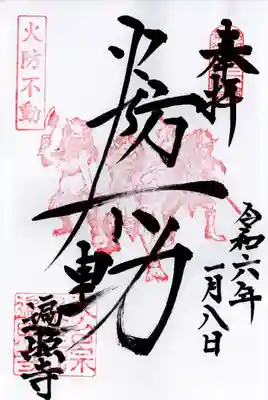 奉拝
令和六年
一月八日
火防
不動
火防不動
遍照寺